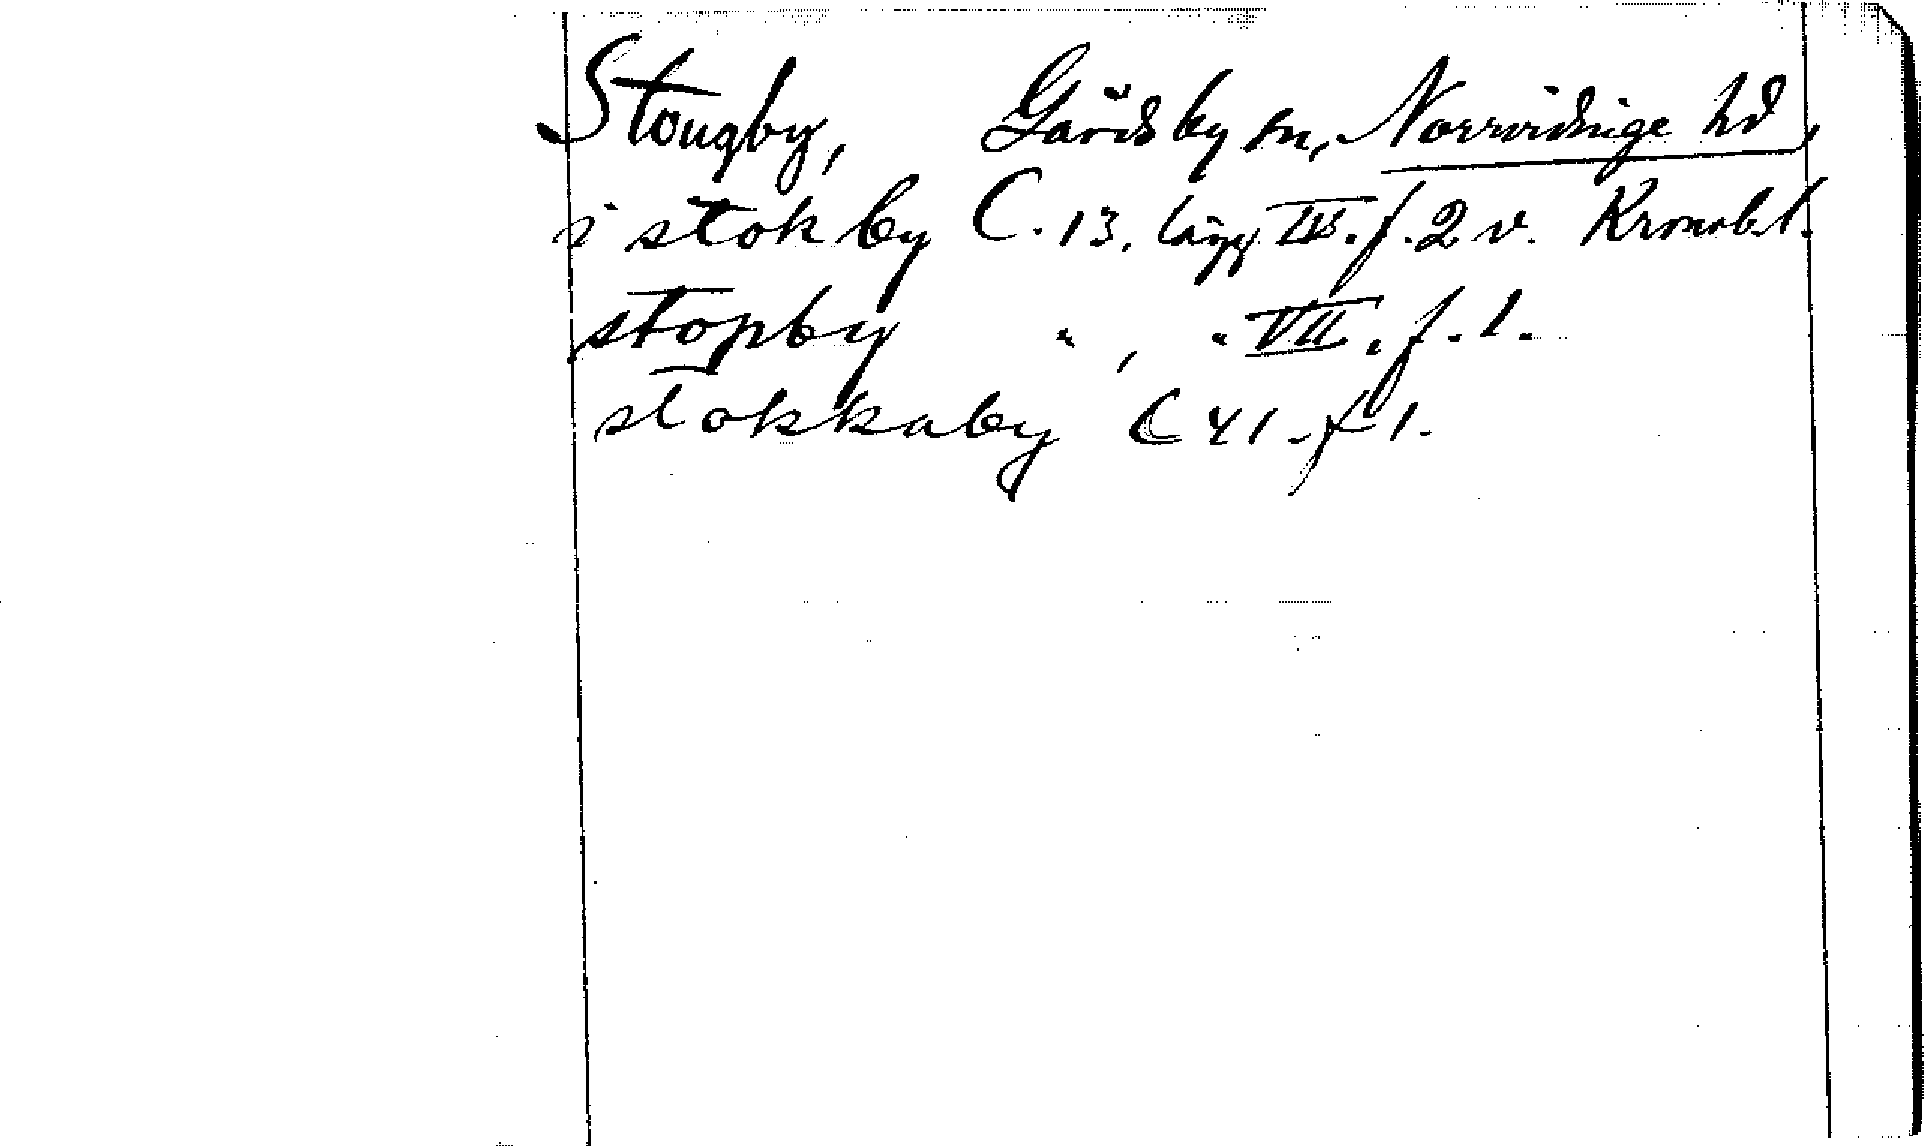 Stougby, Gårdsby sn, Norrvidinge hd,
i stokby C. 13. lägg III. f. 2 v. Kronobl.
stopby " , " VII. f. 1.
stokkaby C 41. f 1.